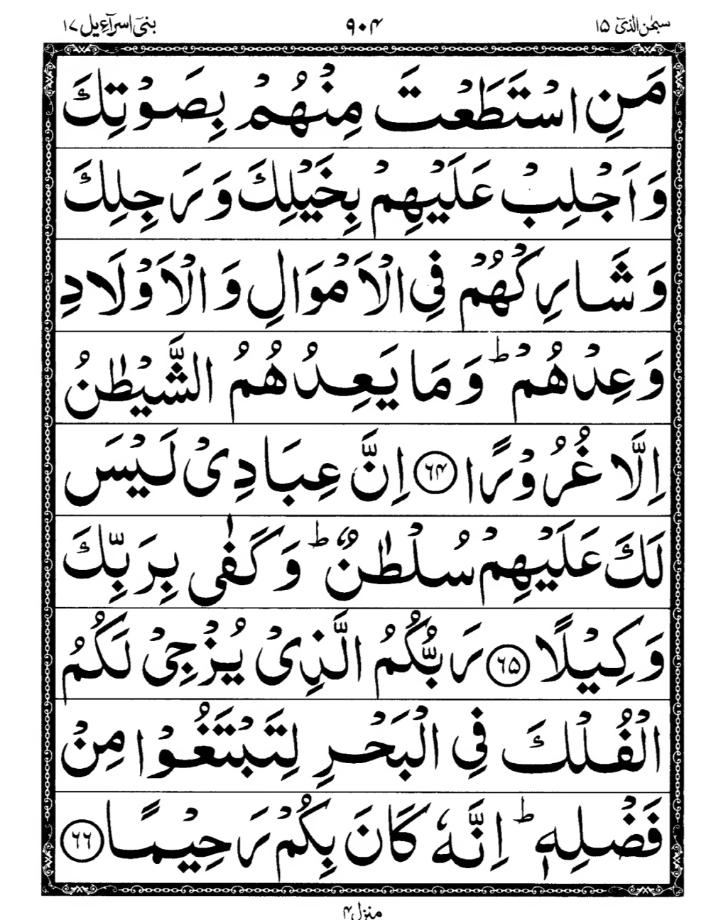 سبحٰن الذیٓ ۱۵ ۹۰۴ بنیٓ اسرآءیل ۱۷
مَنِ اسْتَطَعْتَ مِنْهُمْ بِصَوْتِكَ
وَاَجْلِبْ عَلَیْهِمْ بِخَیْلِكَ وَرَجِلِكَ
وَشَارِكْهُمْ فِی الْاَمْوَالِ وَالْاَوْلَادِ
وَعِدْهُمْ ؕ وَمَا یَعِدُهُمُ الشَّیْطٰنُ
اِلَّا غُرُوْرًا ﴿۶۴﴾ اِنَّ عِبَادِیْ لَیْسَ
لَكَ عَلَیْهِمْ سُلْطٰنٌ ؕ وَكَفٰی بِرَبِّكَ
وَكِیْلًا ﴿۶۵﴾ رَبُّكُمُ الَّذِیْ یُزْجِیْ لَكُمُ
الْفُلْكَ فِی الْبَحْرِ لِتَبْتَغُوْا مِنْ
فَضْلِهٖ ؕ اِنَّهٗ كَانَ بِكُمْ رَحِیْمًا ﴿۶۶﴾
منزل ۴